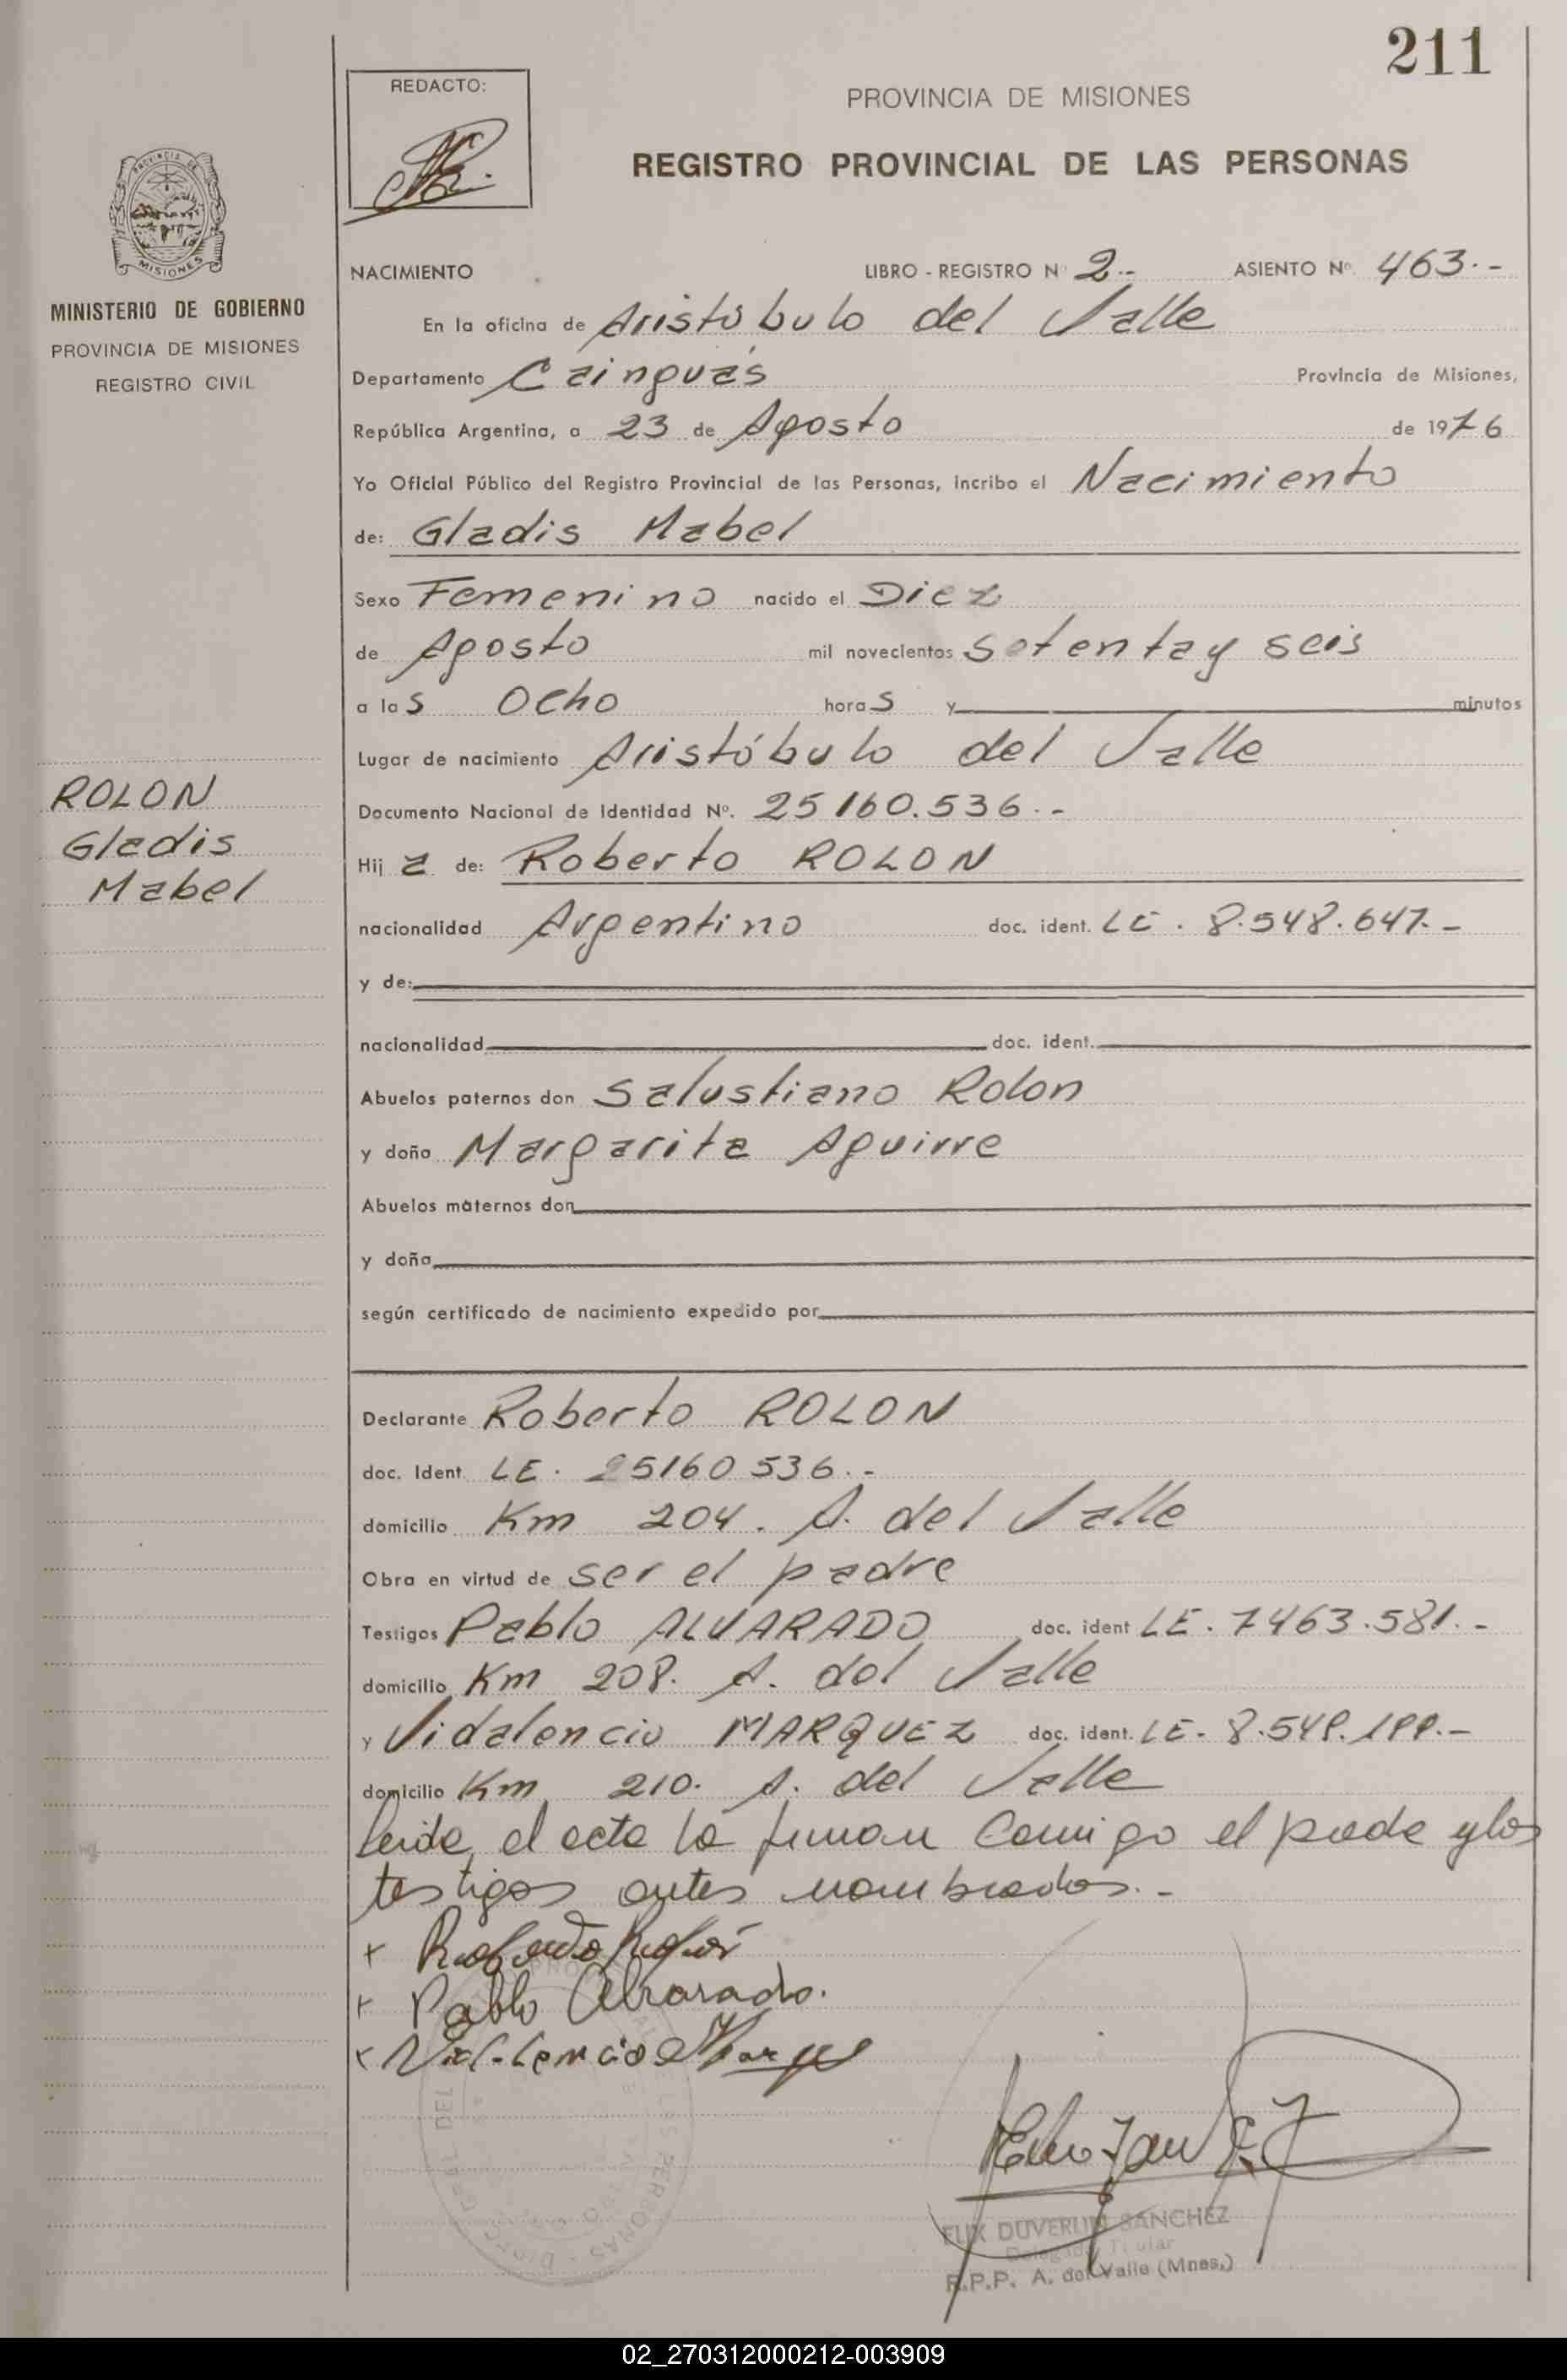 211
REDACTO:
PROVINCIA DE MISIONES
REGISTRO PROVINCIAL DE LAS PERSONAS
PROVINCIA DE
MISIONES
MINISTERIO DE GOBIERNO
PROVINCIA DE MISIONES
REGISTRO CIVIL
NACIMIENTO LIBRO - REGISTRO Nº 2.- ASIENTO Nº 463.-
En la oficina de Aristóbulo del Valle
Departamento Cainguás Provincia de Misiones,
República Argentina, a 23 de Agosto de 1976
Yo Oficial Público del Registro Provincial de las Personas, incribo el Nacimiento
de: Gladis Mabel
Sexo Femenino nacido el Diez
de Agosto mil novecientos setenta y seis
a las ocho horas y minutos
Lugar de nacimiento Aristóbulo del Valle
ROLON
Gladis
Mabel
Documento Nacional de Identidad Nº. 25160.536.-
Hija de: Roberto ROLON
nacionalidad Argentino doc. ident. LE. 8.548.647.-
y de:
nacionalidad doc. ident.
Abuelos paternos don Salustiano Rolon
y doña Margarita Aguirre
Abuelos maternos don
y doña
según certificado de nacimiento expedido por
Declarante Roberto ROLON
doc. Ident. LE. 25160536.-
domicilio Km 204. A. del Valle
Obra en virtud de ser el padre
Testigos Pablo ALVARADO doc. ident LE. 7463.581.-
domicilio Km 208. A. del Valle
y Vidalencio MARQUEZ doc. ident. LE. 8.549.199.-
domicilio Km 210. A. del Valle
Leida el acta la firman Conmigo el padre y los
testigos antes nombrados.-
x
x Pablo Alvarado.
x
FELIX DUVERLIN SANCHEZ
Delegado Titular
R.P.P. A. del Valle (Mnes.)
02_270312000212-003909